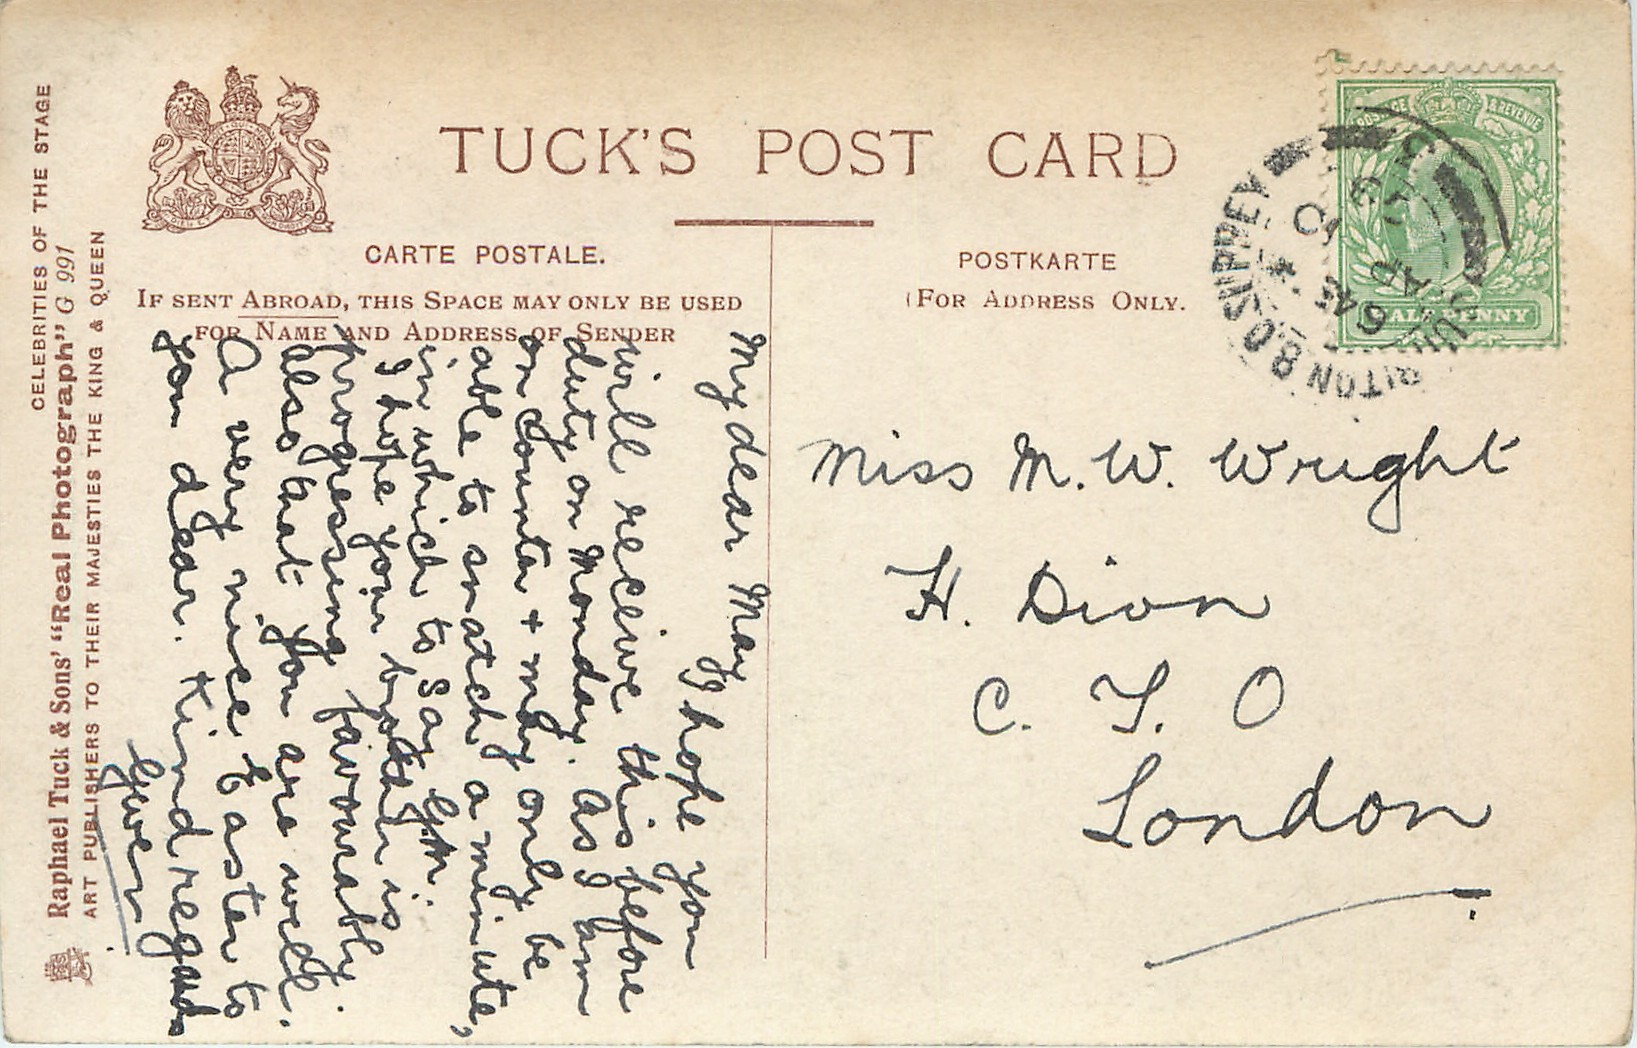 TUCK'S POST CARD
CARTE POSTALE.
IF SENT ABROAD, THIS SPACE MAY ONLY BE USED
FOR NAME AND ADDRESS OF SENDER
POSTKARTE
(FOR ADDRESS ONLY.
CELEBRITIES OF THE STAGE
Raphael Tuck & Sons' "Real Photograph" G 991
ART PUBLISHERS TO THEIR MAJESTIES THE KING & QUEEN
POSTAGE & REVENUE
HALF PENNY
My dear May
I hope you
will receive this before
duty on Monday. As I am
on counter + may only be
able to snatch a minute,
in which to say
I hope your brother is
progressing favourably.
also that you are well.
A very nice Easter to
you dear. Kind regards
Gwen
Miss M. W. Wright
H. Divn
C. T. O
London